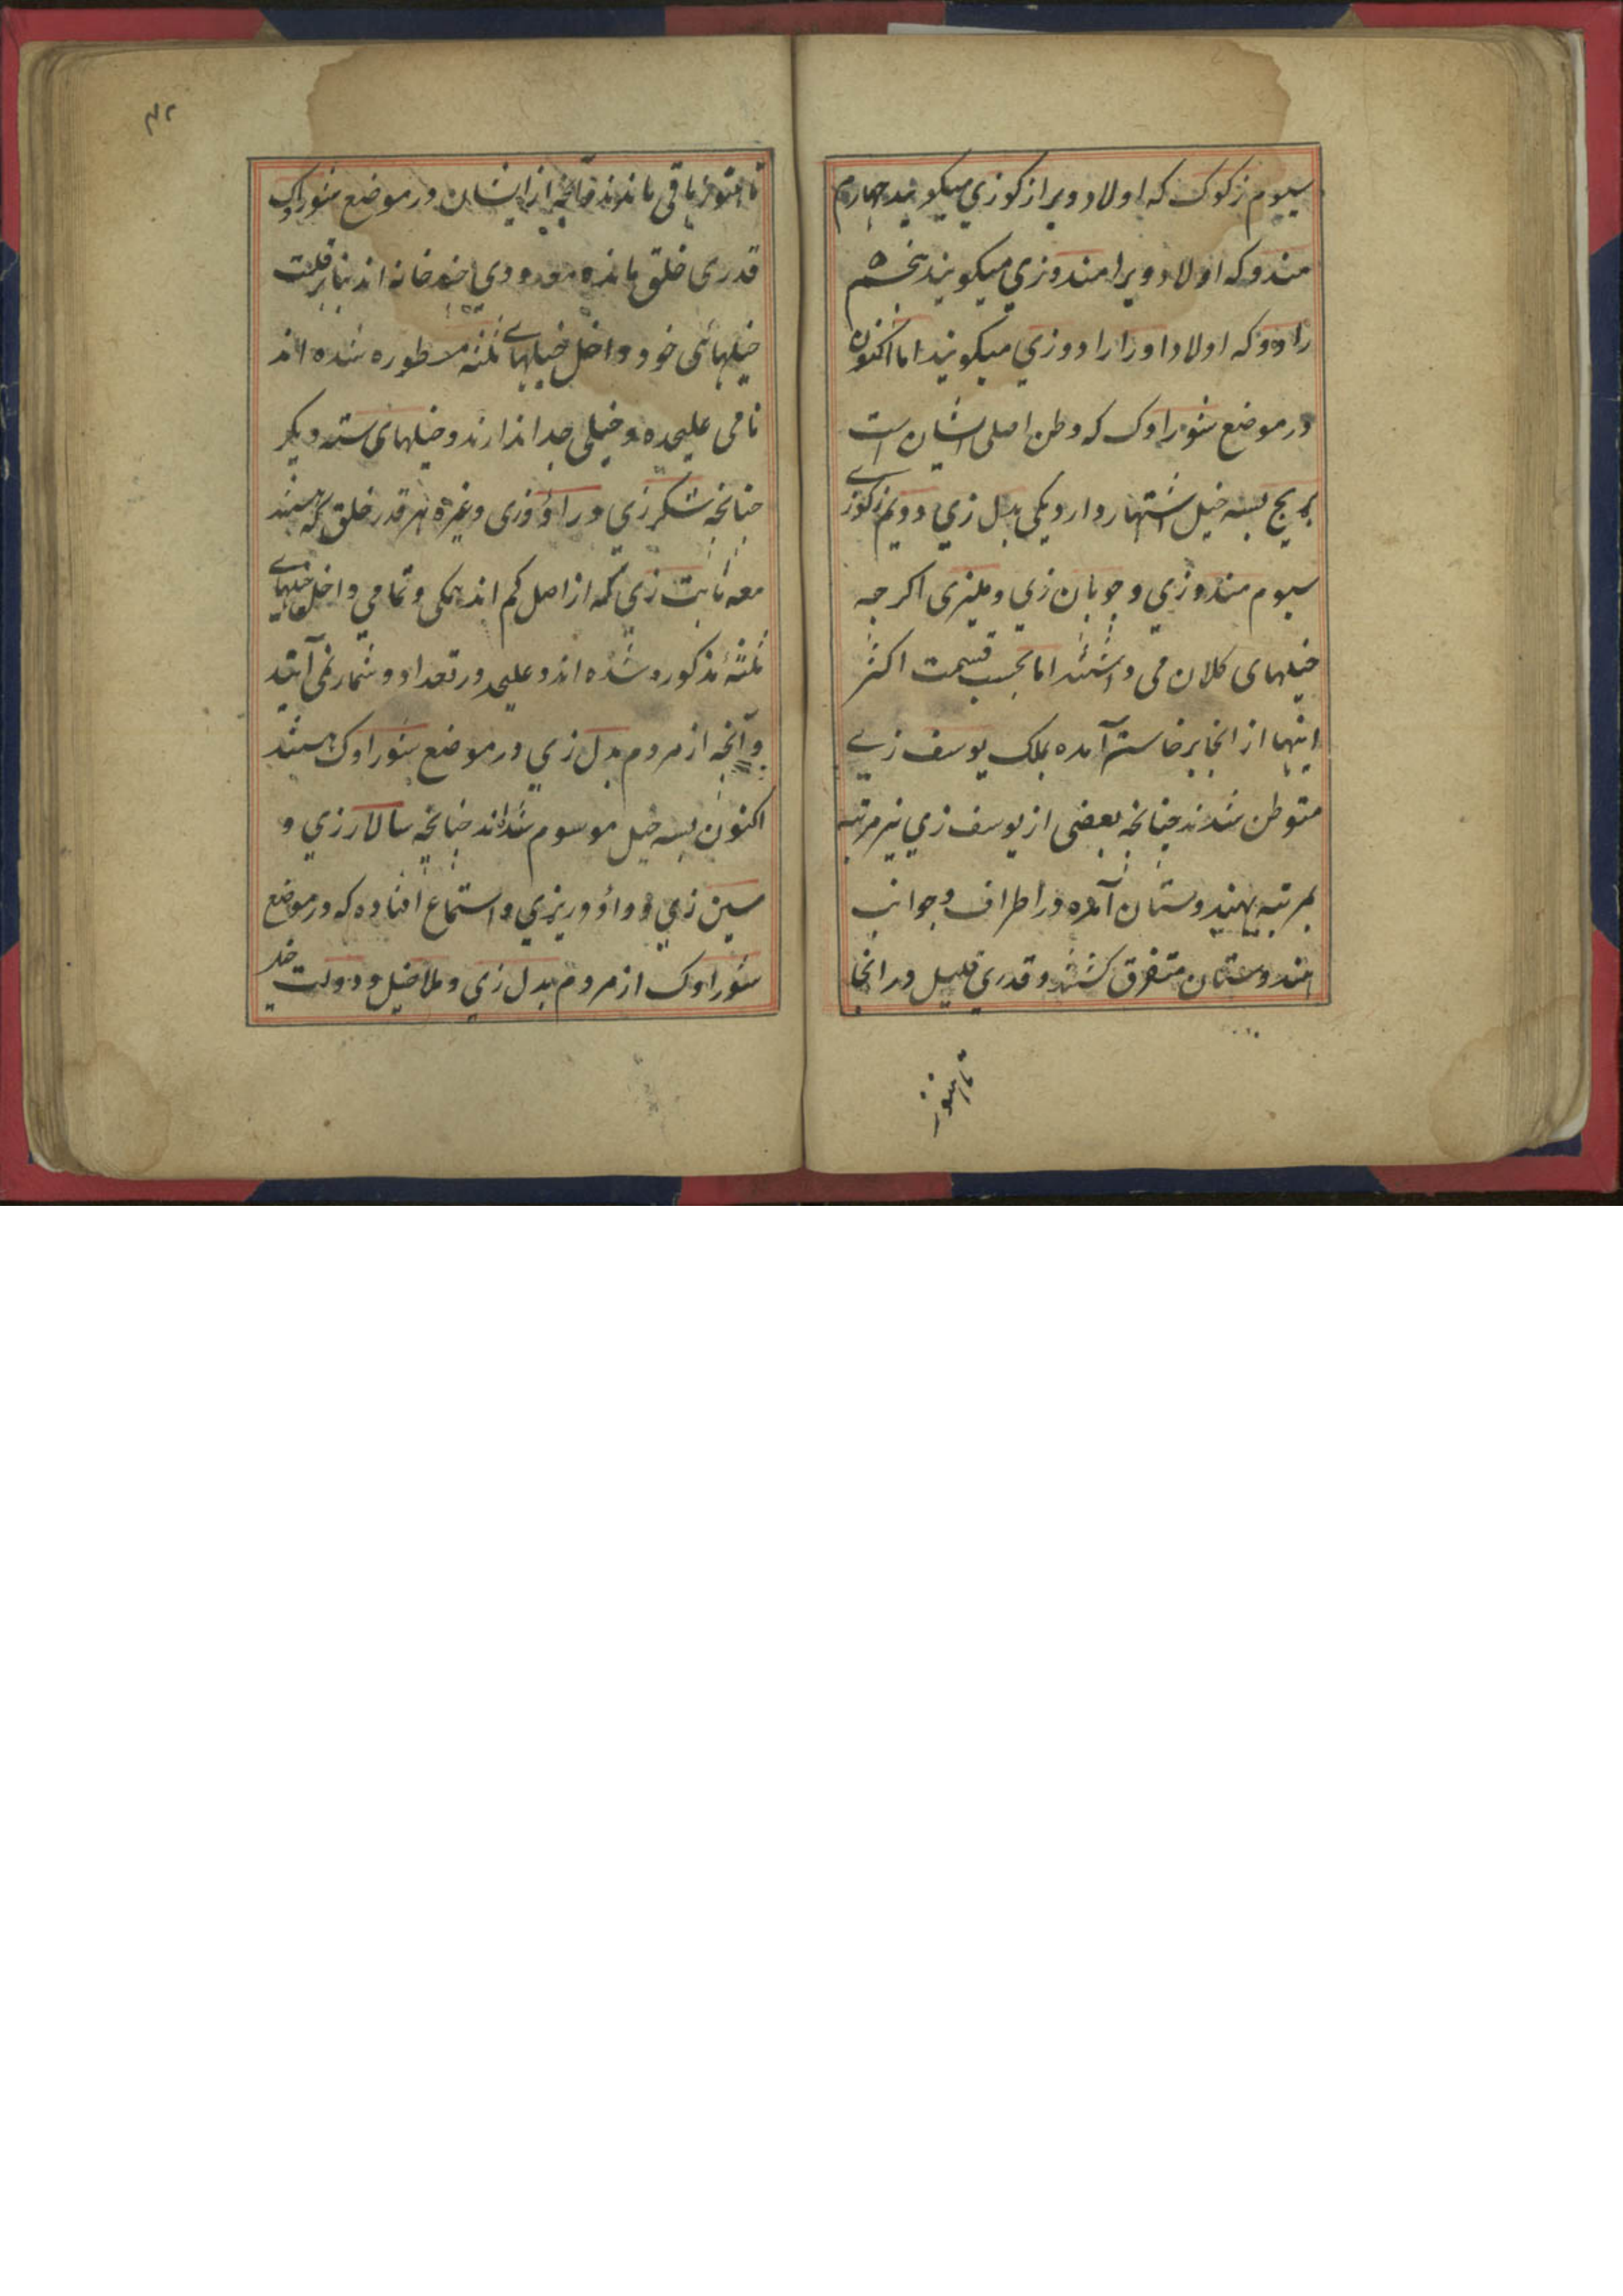 سیوم زکوک که اولاد ویرا زکوزی میکویند چهارم
مندو که اولاد ویرا مندوزی میکویند پنجم
رادو که اولاد اورا رادوزی میکویند اما اکنون
در موضع شوراوک که وطن اصلی ایشان است
بریج بسه خیل اشتهار دارد یکی بدل زی دویم زکوزے
سیوم مندوزی و چوپان زی و ملیزی اکرچه
خیلهای کلان می داشتند اما بحسب قسمت اکثر
اینها از انجا برخاسته آمده بملک یوسف زے
متوطن شدند چنانچه بعضی از یوسف زی نیز مرتبه
بمرتبه بهندوستان آمده در اطراف و جوانب
هندوستان متفرق کشتند و قدری قلیل در انجا
تا هنوز
۴۲
تا هنوز باقی ماندند و آنچه از ایشان در موضع شوراوک
قدری خلق مانده معدودی چند خانه اند بنابر قلت
خیلهائی خود داخل خیلهاے ثلثه مسطوره شده اند
نامی علیحده و خیلی جدا ندارند و خیلهای سته دیکر
چنانچه شکرزی و راؤوزی و غیره هر قدر خلق که هستند
معه ثابت زی که از اصل کم اند همکی و تمامی داخل خیلهاے
ثلثهٔ مذکوره شده اند و علیحده در تعداد و شمار نمی آیند
و آنچه از مردم بدل زی در موضع شوراوک هستند
اکنون بسه خیل موسوم شده اند چنانچه سالارزی و
سین زی و داؤدریزی و استماع افتاده که در موضع
شوراوک از مردم بدل زی و ملاخیل و دولت خیل